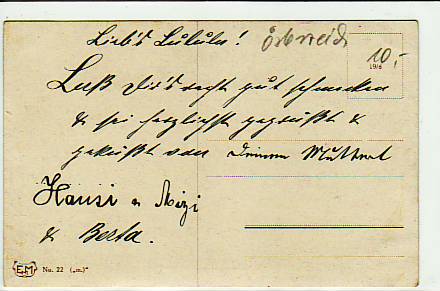 Lieb's Lululu! Österreich
10,-
19/6
Laß Dir's recht gut schmecken
& sei herzlichst gegrüßt &
geküßt von Deinem Mutterl
Hansi u Mizi
& Berta.
EM No. 22 („m.)"